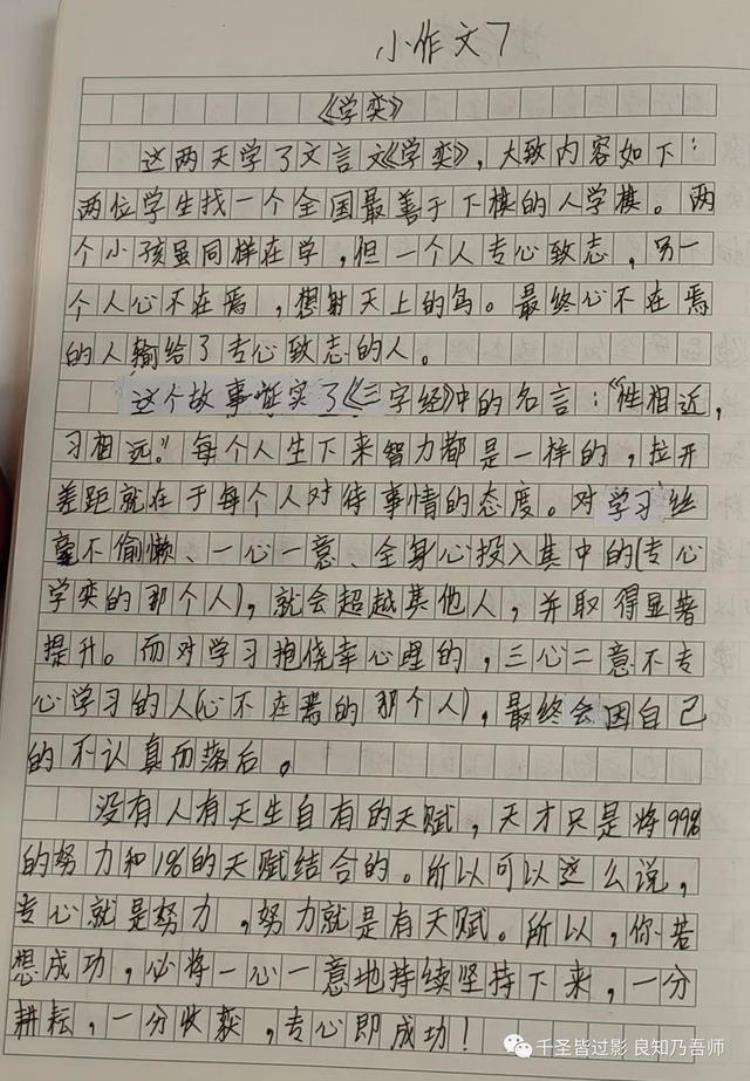 小作文7
《学奕》
这两天学了文言文《学奕》，大致内容如下：
两位学生找一个全国最善于下棋的人学棋。两
个小孩虽同样在学，但一个人专心致志，另一
个人心不在焉，想射天上的鸟。最终心不在焉
的人输给了专心致志的人。
这个故事证实了《三字经》中的名言：“性相近，
习相远。”每个人生下来智力都是一样的，拉开
差距就在于每个人对待事情的态度。对学习丝
毫不偷懒、一心一意、全身心投入其中的(专心
学奕的那个人)，就会超越其他人，并取得显著
提升。而对学习抱侥幸心理的，三心二意不专
心学习的人(心不在焉的那个人)，最终会因自己
的不认真而落后。
没有人有天生自有的天赋，天才只是将99%
的努力和1%的天赋结合的。所以可以这么说，
专心就是努力，努力就是有天赋。所以，你若
想成功，必将一心一意地持续坚持下来，一分
耕耘，一分收获，专心即成功！
千圣皆过影 良知乃吾师